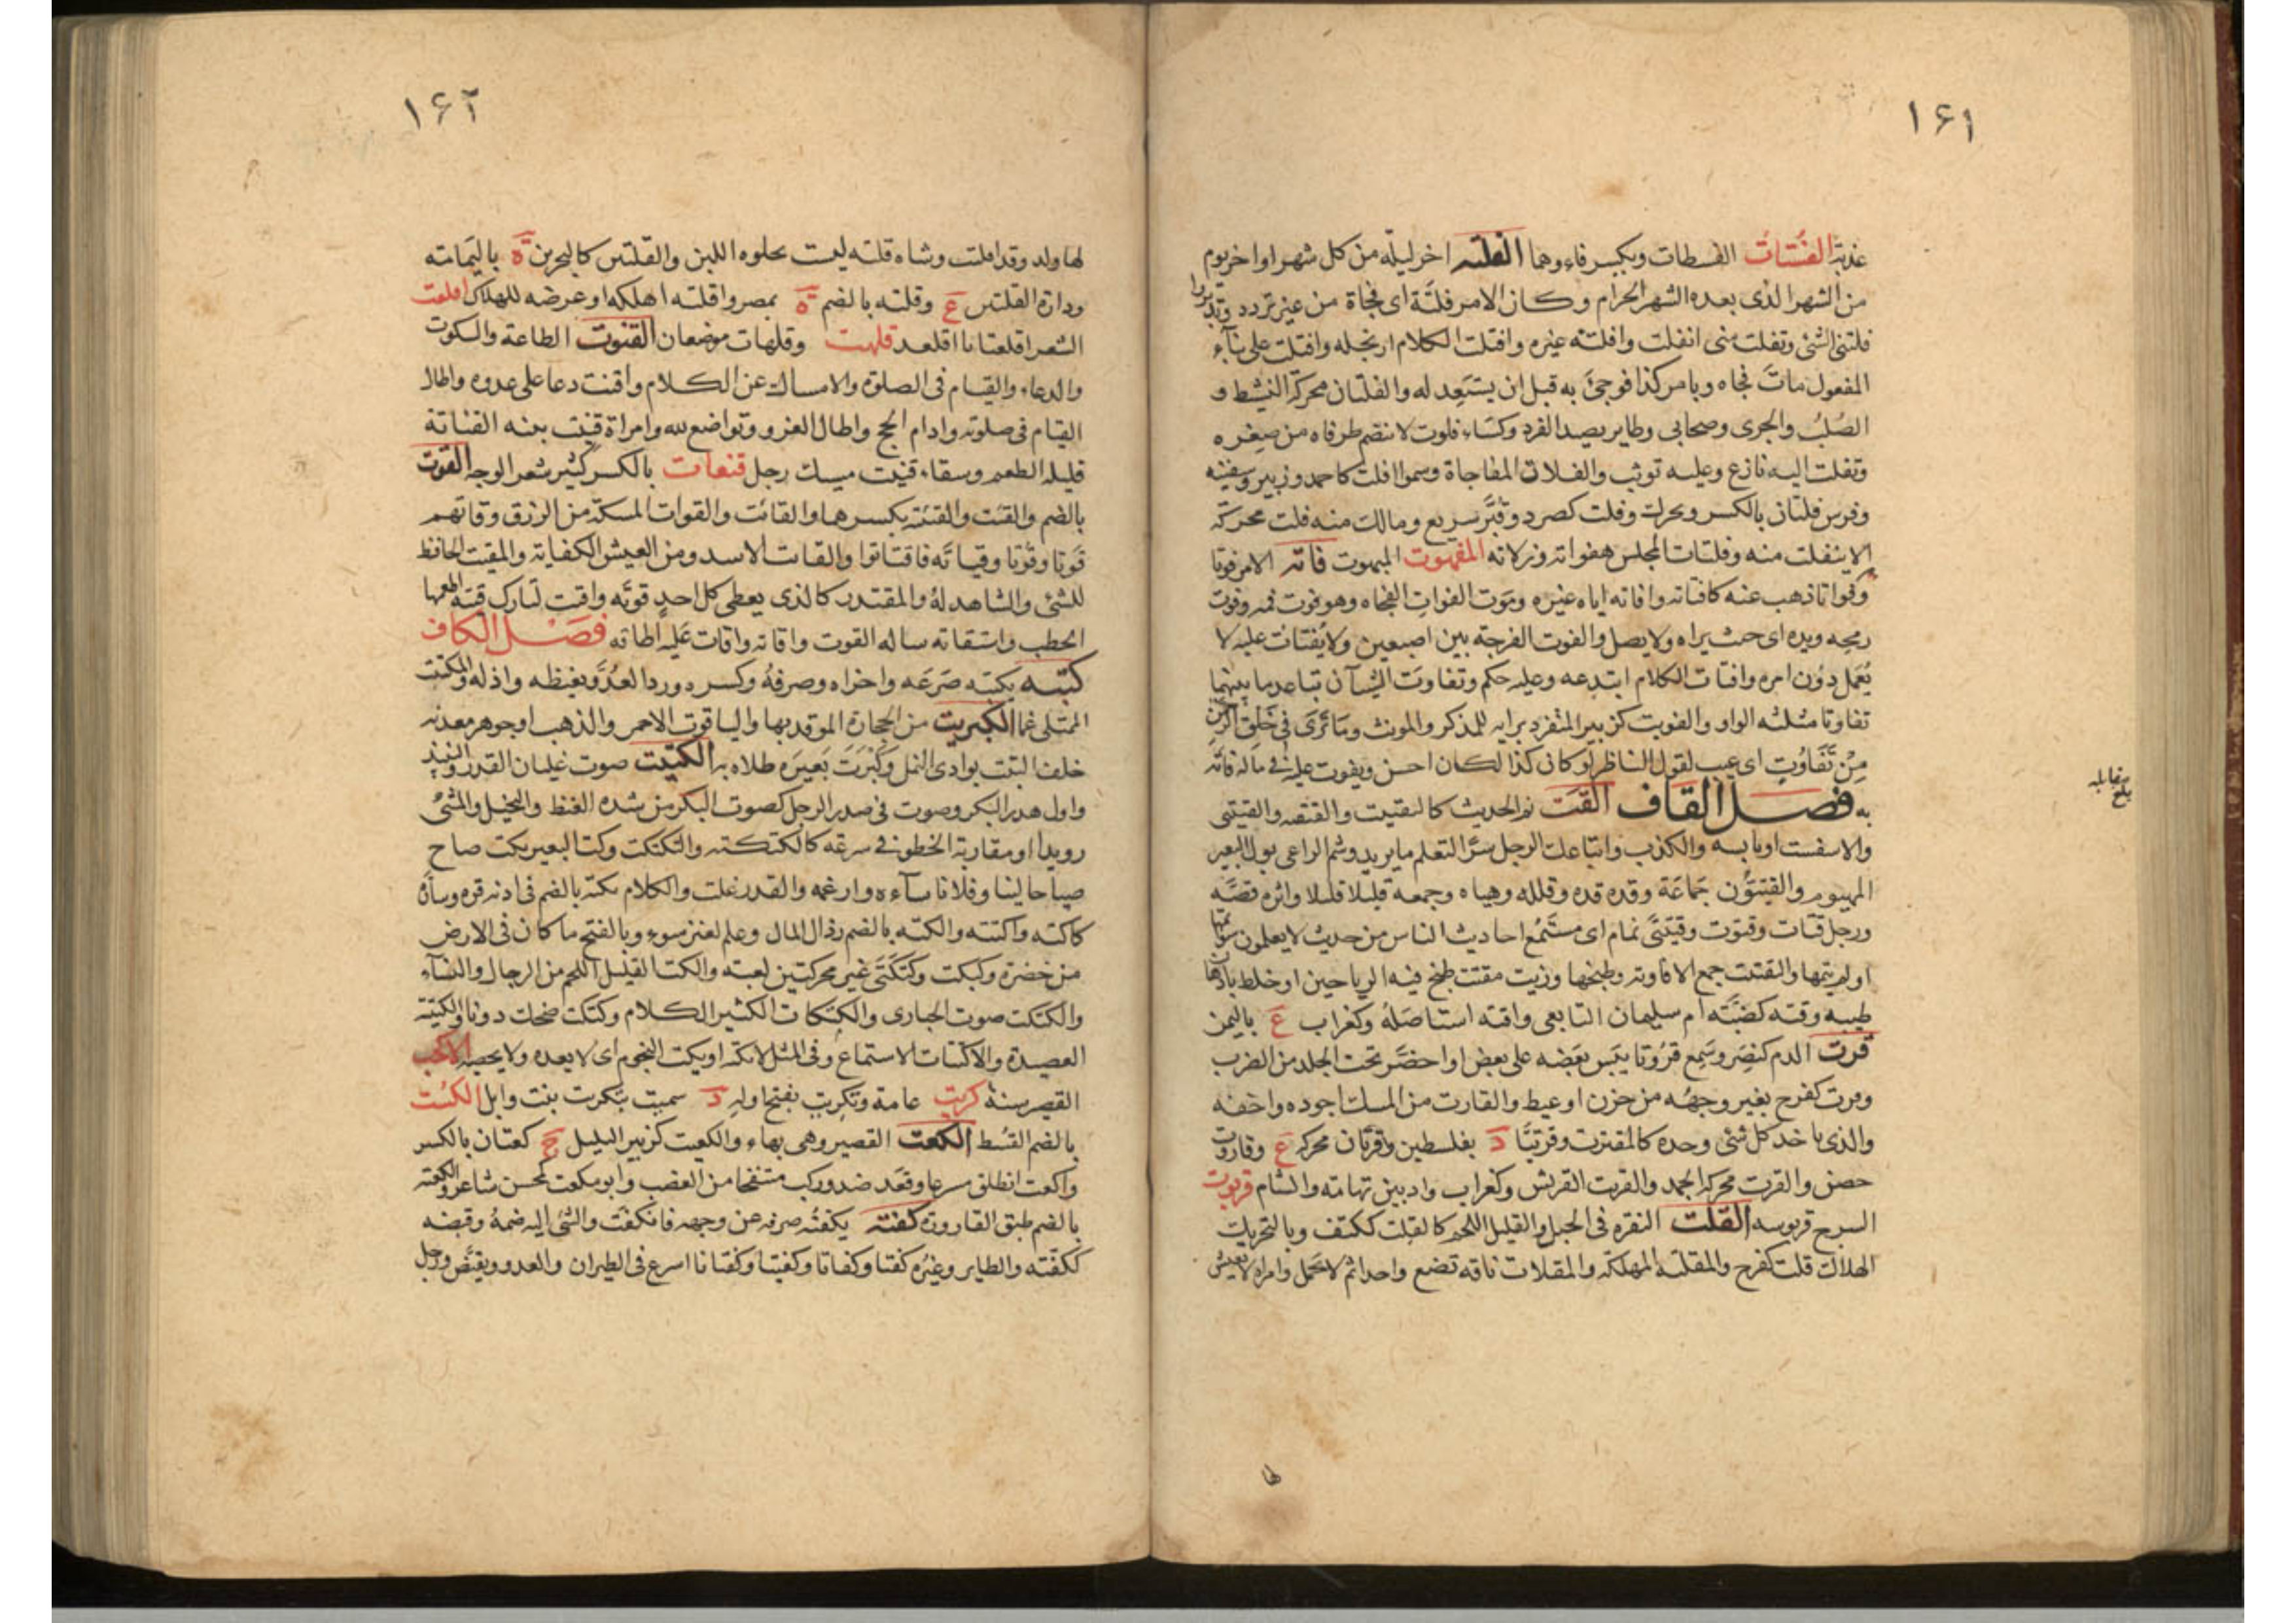 ١٦١
عذبة الفُسْتاتُ الفسطات وبكسر فاءوهما الفلته اخر ليلة من كل شهر او اخر يوم
من الشهر الذى بعده الشهر الحرام وكان الامر فلتَة اى فجاة من غير تردد وتدبروا
فلتنى الشئ وتفلت منى انفلت وافلته غيره وافتلت الكلام ارتجله وافتلت على بناء
المفعول مات فجاه وبامر كذا فوجئ به قبل ان يستعد له والفلتان محركة النشيط و
الصُلبُ والجرى وصحابى وطاير يصيد القرد وكساء فلوت لا ينضم طرفاه من صِغره
وتفلت اليه نازع وعليه توثب والفلات المفاجاة وسموا افلت كاحمد وزبير وسفينه
وفرس فلتان بالكسر ويحرك وفلت كصرد وقُبَّر سريع ومالك منه فلت محركة
لا ينفلت منه وفلتات المجلس هفواته وزلاته المفهوت المبهوت فاته الامر فوتا
وفواتا ذهب عنه كافتاته وافاته اياه غيره وموت الفوات الفجاه وهو فوت فمه وفوت
رمحه ويده اى حيث يراه ولا يصل والفوت الفرجة بين اصبعين ولا يُفتات عليه لا
يُعمل دون امره وافتات الكلام ابتدعه وعليه حكم وتفاوت الشيآن تباعد ما بينهما
تفاوتا مثلثه الواو والفويت كزبير المتفرد برايه للمذكر والمونث وما ترى فى خلق الرحمن
مِنْ تَفَاوُتٍ اى عيب لقول الناظر لو كان كذا لكان احسن ويفوت عليه فى ماله فاته
به فصل القاف القت نم الحديث كالتقتيت والقتقته والقتيتى
والاسفست اويابسه والكذب واتباعك الرجل سرًّا لتعلم ما يريد وشم الراعى بول البعير
المهيوم والقيتؤُن جماعة وقده قده وقلله وهياه وجمعه قليلا قليلا واثره قصّه
ورجل قتات وقتوت وقتيتى نمام اى مستمع احاديث الناس من حيث لا يعلمون سوا نمها
او لم ينمها والقتت جمع الافاويه وطبخها وزيت مقتت طبخ فيه الرياحين او خلط بادهان
طيبه وقته كضبَّة ام سليمان التابعى واقته استاصله وكغراب ع باليمن
قرت الدم كنصر وسمع قروتا يبس بعضه على بعض او اخضر تحت الجلد من الضرب
وقرت كفرح تغير وجهه من حزن او غيظ والقارت من المسك اجوده واخفه
والذى ياخذ كل شئ وحده كالمقترت وقرتيّا د بفلسطين وقرتان محركه ع وقاروت
حصن والقرت محركة الجمد والقريت القريش وكغراب واد بين تهامه والشام قربوت
السرج قربوسه القلت النقره فى الجبل والقليل اللحم كالقلت ككتف وبالتحريك
الهلاك قلت كفرح والمقلته المهلكه والمقلات ناقه تضع واحدا ثم لا تحمل وامراه لا يعيش
لها
بلغ مقابله
١٦٢
لها ولد وقد اقلتت وشاه قلته ليست بحلوه اللبن والقلتين كالبحرين ة باليمامته
ودارة القلتين ع وقلته بالضم ة بمصر واقلته اهلكه او عرضه للهلاك اقلعت
الشعر اقلعتاتا اقلعد قلهت وقلهات موضعان القنوت الطاعة والسكوت
والدعاء والقيام فى الصلوة والامساك عن الكلام واقنت دعا على عدوه واطال
القيام فى صلوته وادام الحج واطال الغزو وتواضع لله وامراة قنيت بينه القناتة
قليله الطعم وسقاء قنيت مسيك رجل قنعات بالكسر كثير شعر الوجه القوت
بالضم والقيت والقيته بكسرهما والقائت والقوات المسكة من الرزق وقاتهم
قوتا وقُوتا وقياتَه فاقتاتوا والقائت الاسد ومن العيش الكفاية والمقيت الحافظ
للشئ والشاهد له والمقتدر كالذى يعطى كل احدٍ قوته واقت لنارك قيته اطعمها
الحطب واستقاته ساله القوت واقاته واقات عليه اطاقه فصل الكاف
كبته يكبته صرعه واخزاه وصرفه وكسره ورد العدو بغيظه واذله والمكتبت
الممتلى غما الكبريت من الحجارة الموقد بها والياقوت الاحمر والذهب او جوهر معدنه
خلف التبت بوادى النمل وكبرت بعيره طلاه به الكتيت صوت غليان القدر والنبيذ
واول هدر البكر وصوت فى صدر الرجل كصوت البكر من شدة الغيظ والبخيل والمشى
رويدا او مقاربة الخطو فى سرعه كالكتكته والتكتكت وكت البعير يكت صاح
صياحا لينا وفلانا ساءه وارغمه والقدر غلت والكلام يكته بالضم فى اذنه قره وساره
كاكته واكتته والكته بالضم رذال المال وعلم لعنز سوء وبالفتح ما كان فى الارض
من خضرة وكبكت وكتكتى غير محركتين لعبته والكت القليل اللحم من الرجال والنسآء
والكتكت صوت الحبارى والكتكات الكثير الكلام وكتكت ضحك دونا والكتيتة
العصيدة والاكتتات الاستماع وفى المثل لا تكته او تكت النجوم اى لا يعده ولا يحصيه
القصير سنة كريت عامة وتكريت بفتح اوله د سميت بتكريت بنت وايل الكست
بالضم القسط الكعت القصير وهى بهاء والكعيت كزبير البلبل ج كعتان بالكسر
واكعت انطلق مسرعا وقعد ضد وركب منتفخا من الغضب وابو مكعت كمحسن شاعر والكعته
بالضم طبق القارورة كفته يكفته صرفه عن وجهه فانكفت والشئ اليه ضمه وقبضه
ككفّته والطاير وغيره كفتا وكفاتا وكفيتا وكفتانا اسرع فى الطيران والعدو وتقبّض ورجل